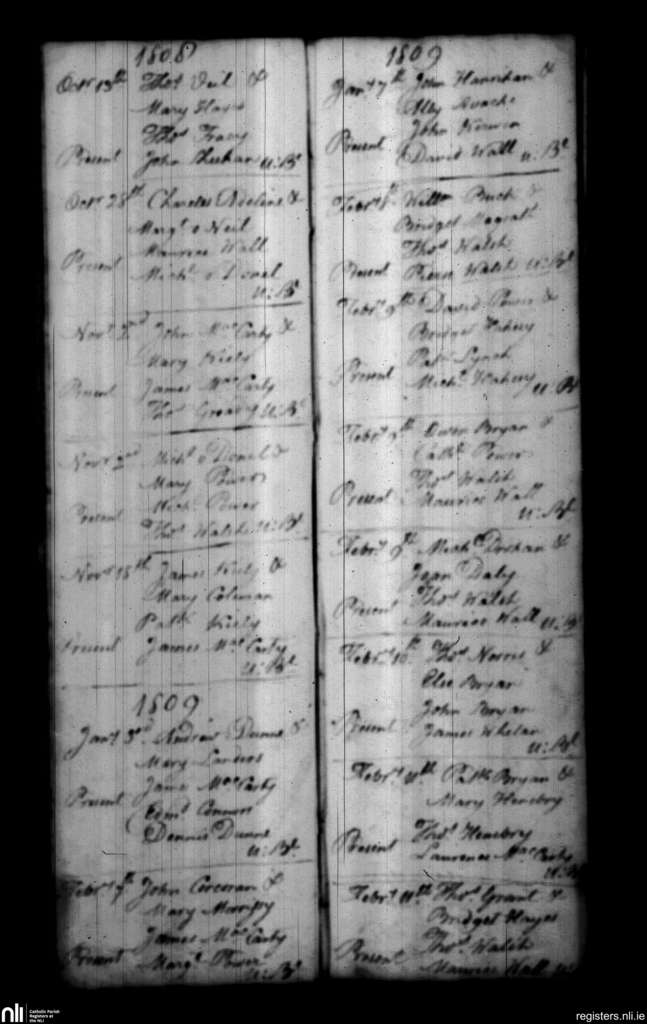 1808
Octr 13th Thos Veil &
Mary Hayes
Thos Tracy
Present John Sheehan U:Bd
Octr 28th Charles &
Margt o Neil
Maurice Wall
Present Michl o Donel
U:Bd
Novr 2nd John MacCarty &
Mary Kiely
Present James MacCarty
Thos U:Bd
Novr 2nd Michl o Donel &
Mary Power
Michl Power
Present Thos Walsh U:Bd
Novr 18th James Kiely &
Mary Coleman
Patk Kiely
Present James MacCarty
U:Bd
1809
Jany 3rd Andrew Dunne &
Mary Landers
James MacCarty
Present Edmd Connors
Dennis Dunne
U:Bd
Febry 7th John Corcoran &
Mary Morrissy
James MacCarty
Present Margt Power
U:Bd
1809
Jany 7th John Hanrihan &
Alley
John Kirwen
Present David Wall U:Bd
Febry Willm Buck &
Bridget Magrath
Thos Walsh
Present Pierce Walsh U:Bd
Febry 9th David Power &
Bridget Fahey
Patk Lynch
Present Michl U:Bd
Febry 9th Owen Bryan &
Cathe Power
Thos Walsh
Present Maurice Wall
U:Bd
Febry 9th Michl &
Joan Daly
Thos Walsh
Present Maurice Wall U:Bd
Febry 10th Thos Norris &
Elie Bryan
John Bryan
Present James Whelan
U:Bd
Febry 11th Patk Bryan &
Mary Henebry
Thos Henebry
Present Laurence MacCarty
U:Bd
Febry 11th Thos Grant &
Bridget Hayes
Thos Walsh
Present Maurice Wall
nli Catholic Parish
Registers at
the NLI
registers.nli.ie